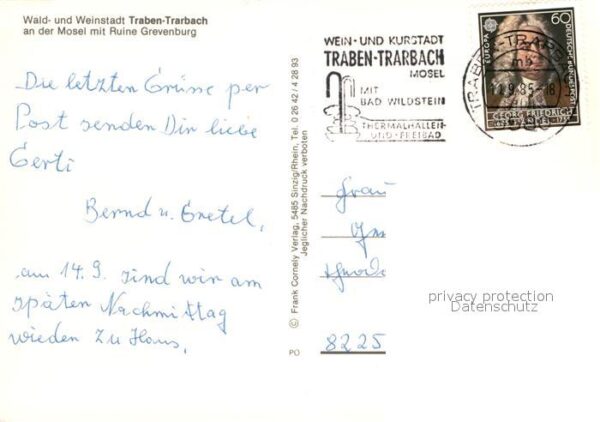 Wald- und Weinstadt Traben-Trarbach
an der Mosel mit Ruine Grevenburg
Die letzten Grüsse per
Post senden Dir liebe
Gerti
Bernd u. Gretel,
am 14.9. sind wir am
späten Nachmittag
wieder zu Haus,
© Frank Cornely Verlag, 5485 Sinzig/Rhein, Tel. 0 26 42 / 4 28 93
Jeglicher Nachdruck verboten
PO
WEIN- UND KURSTADT
TRABEN-TRARBACH
MOSEL
MIT
BAD WILDSTEIN
THERMALHALLEN-
UND-FREIBAD
TRABEN-TRARBACH
mb
11.9.85-18
EUROPA
60
DEUTSCHE BUNDESPOST
GEORG FRIEDRICH
HÄNDEL
Frau
8225
privacy protection
Datenschutz